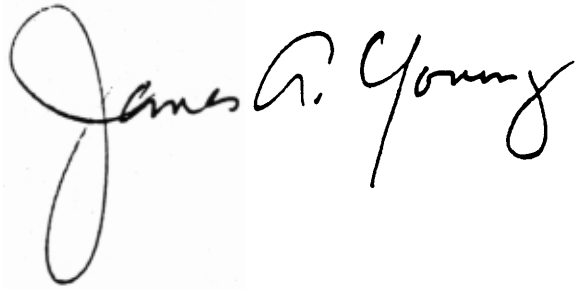 James A. Young